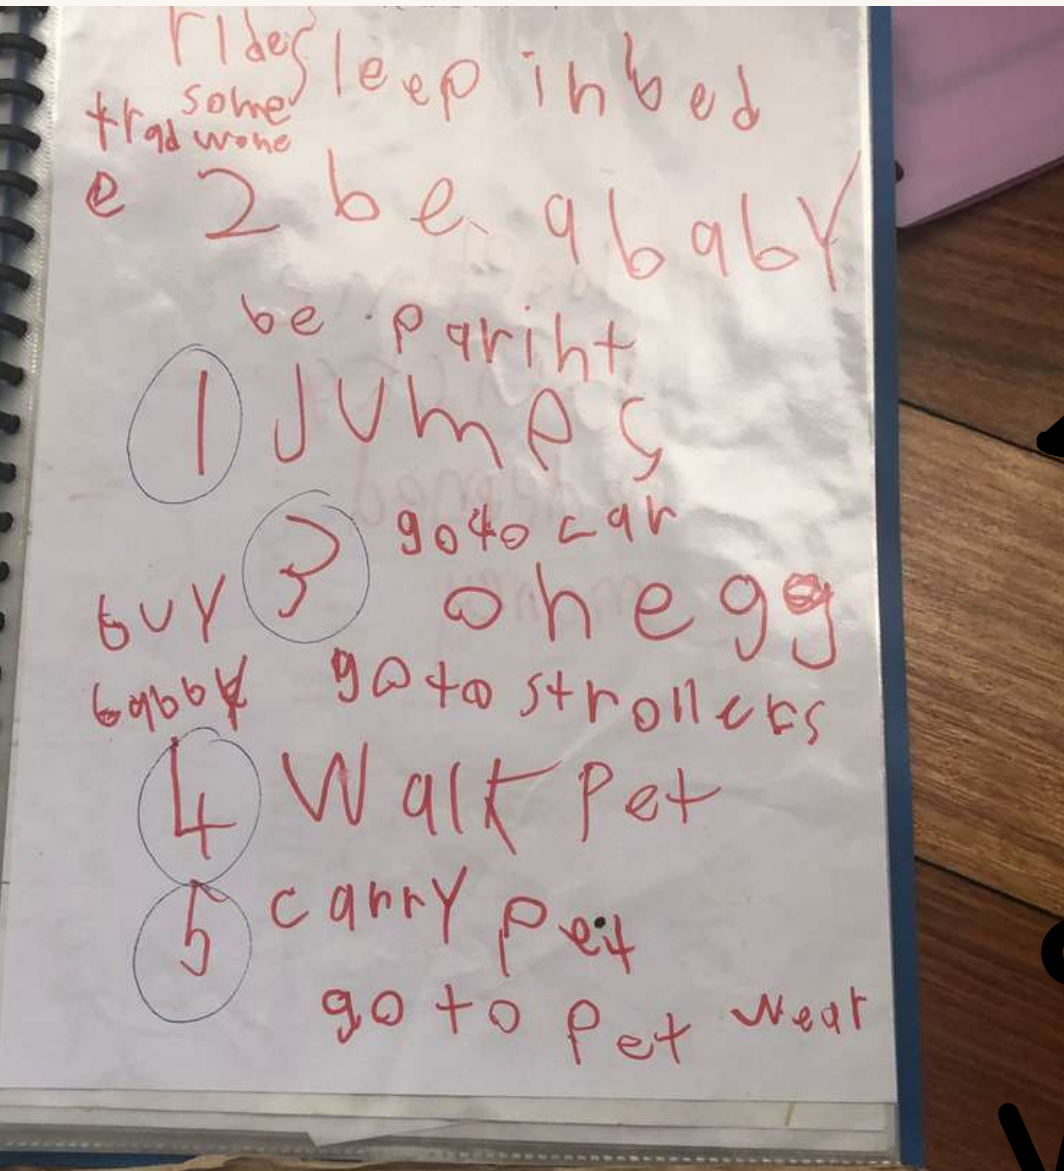 rides sleep in bed
some
trad wone
e 2 be a baby
be pariht
1 Jumps
3 go to car
buy on egg
babby go to strollers
4 Walk Pet
5 carry pet
go to Pet wear